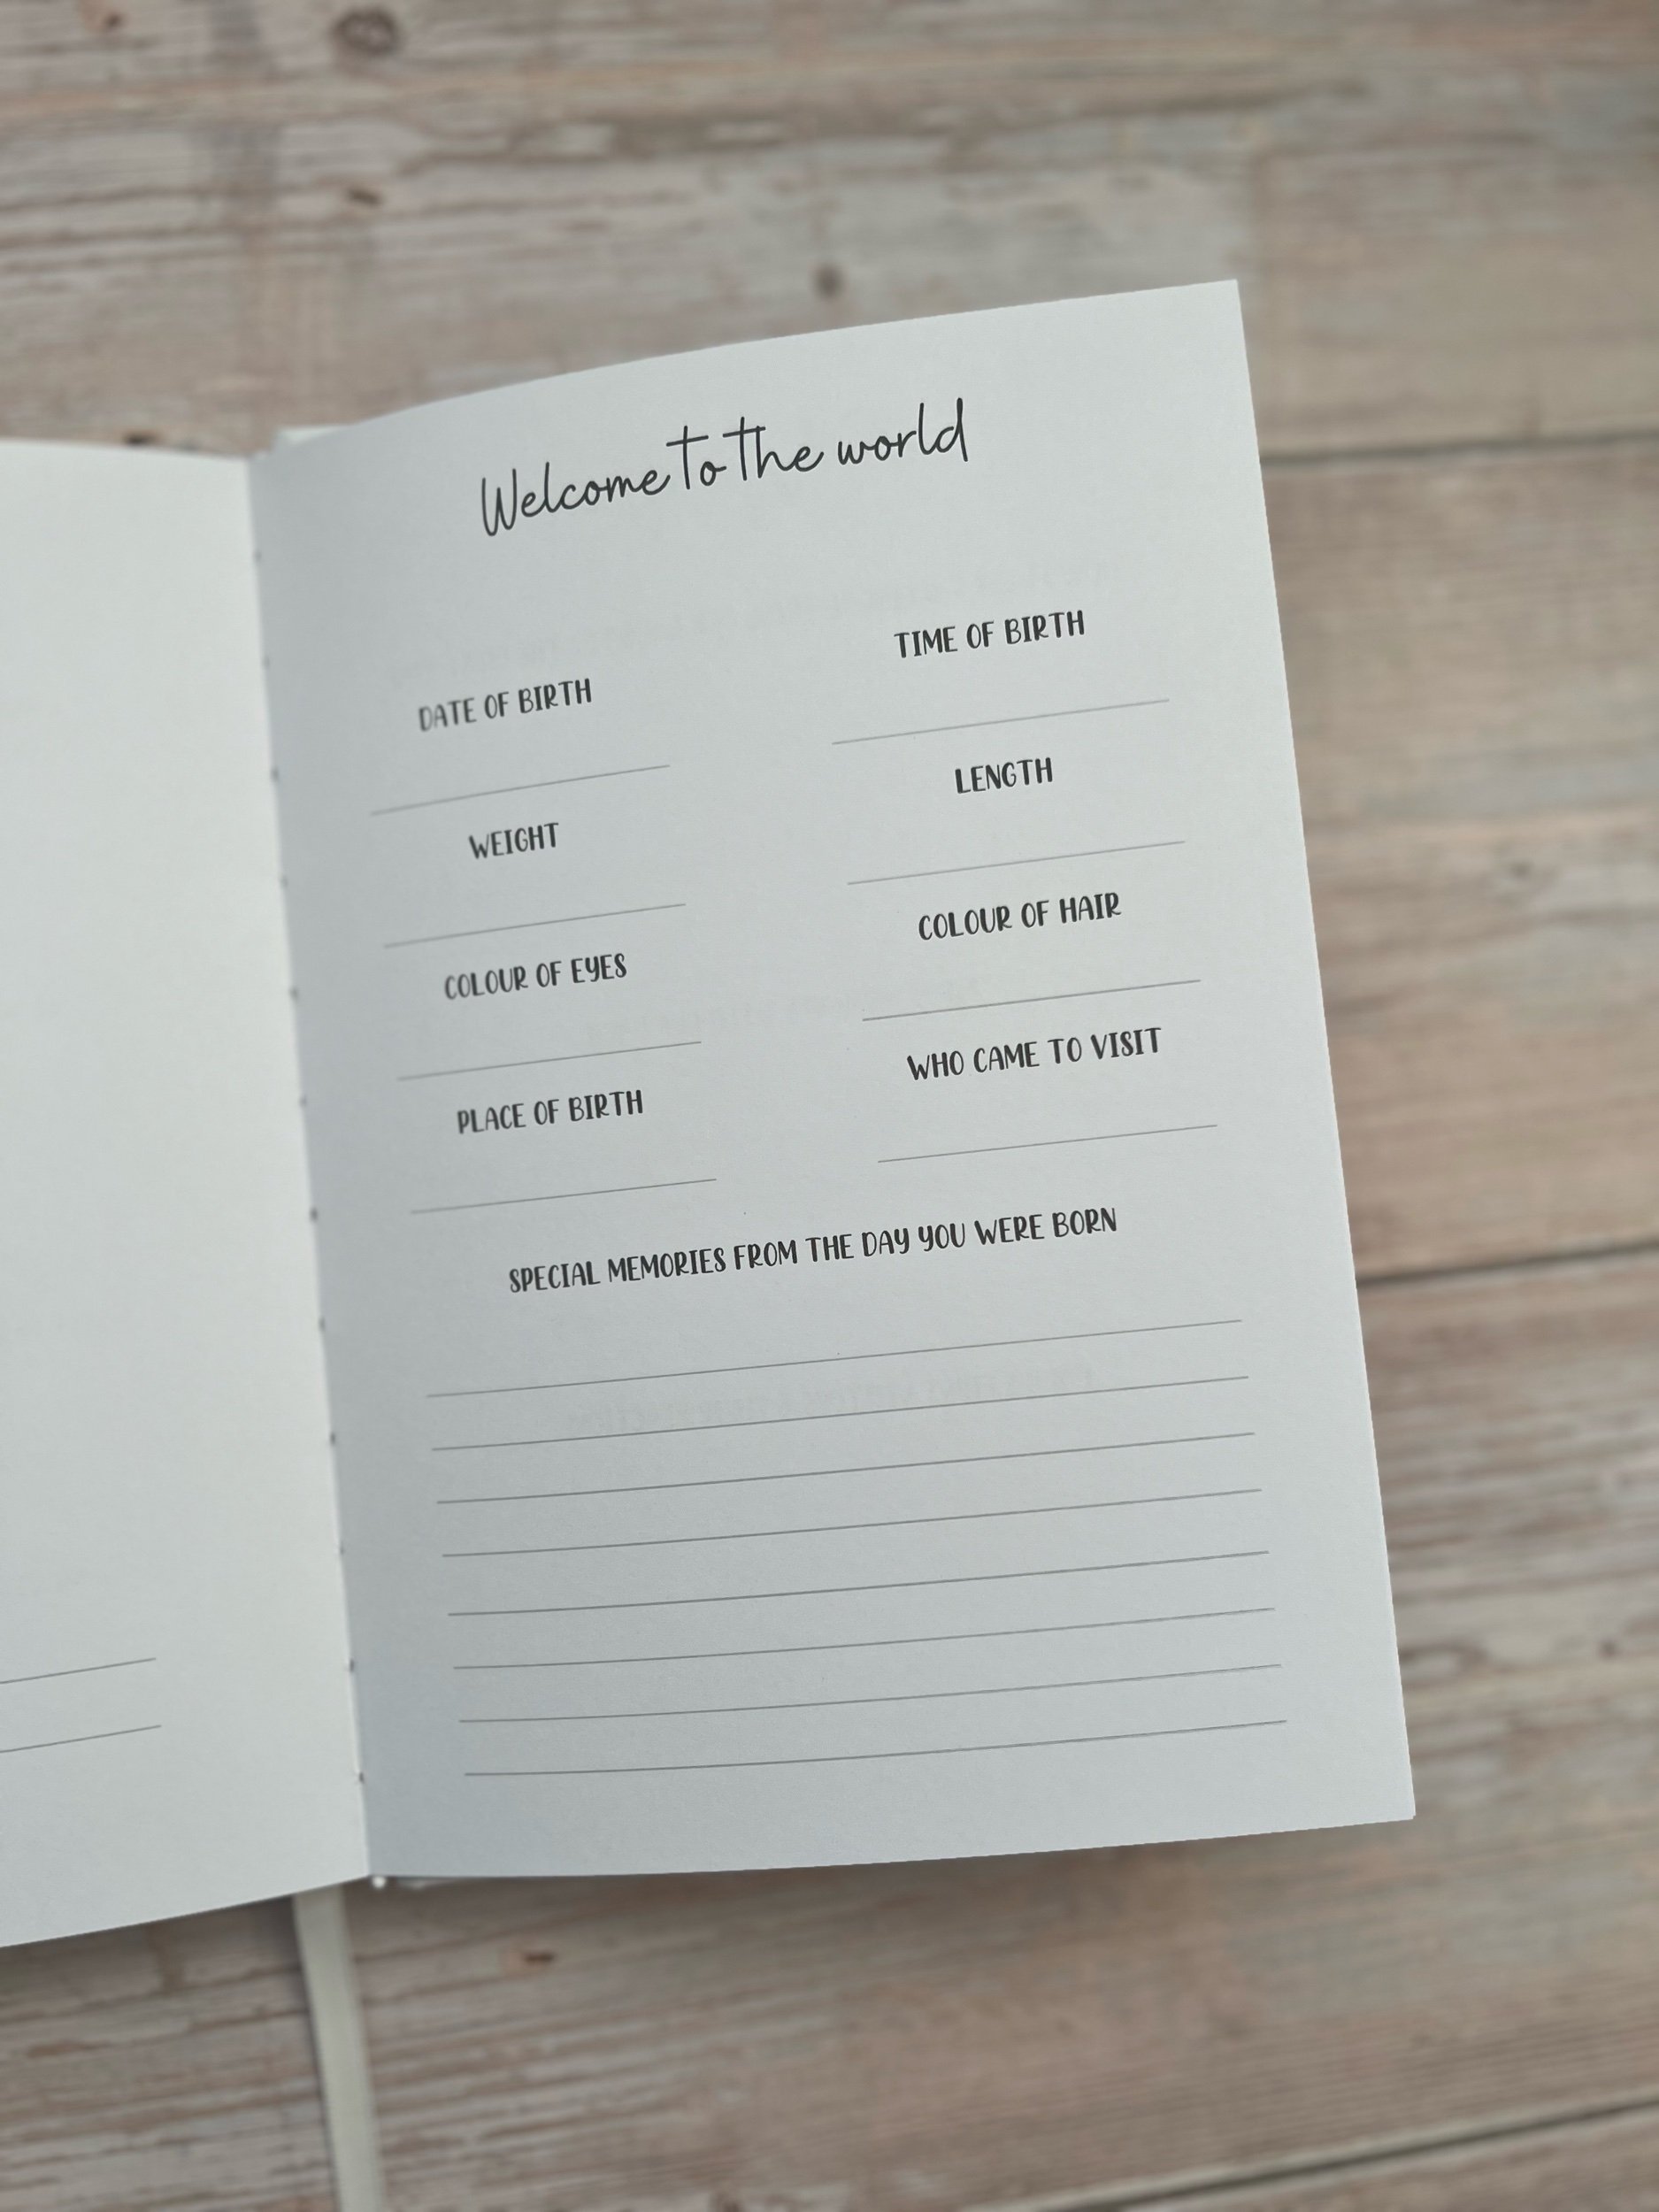 Welcome to the world
DATE OF BIRTH
TIME OF BIRTH
WEIGHT
LENGTH
COLOUR OF EYES
COLOUR OF HAIR
PLACE OF BIRTH
WHO CAME TO VISIT
SPECIAL MEMORIES FROM THE DAY YOU WERE BORN